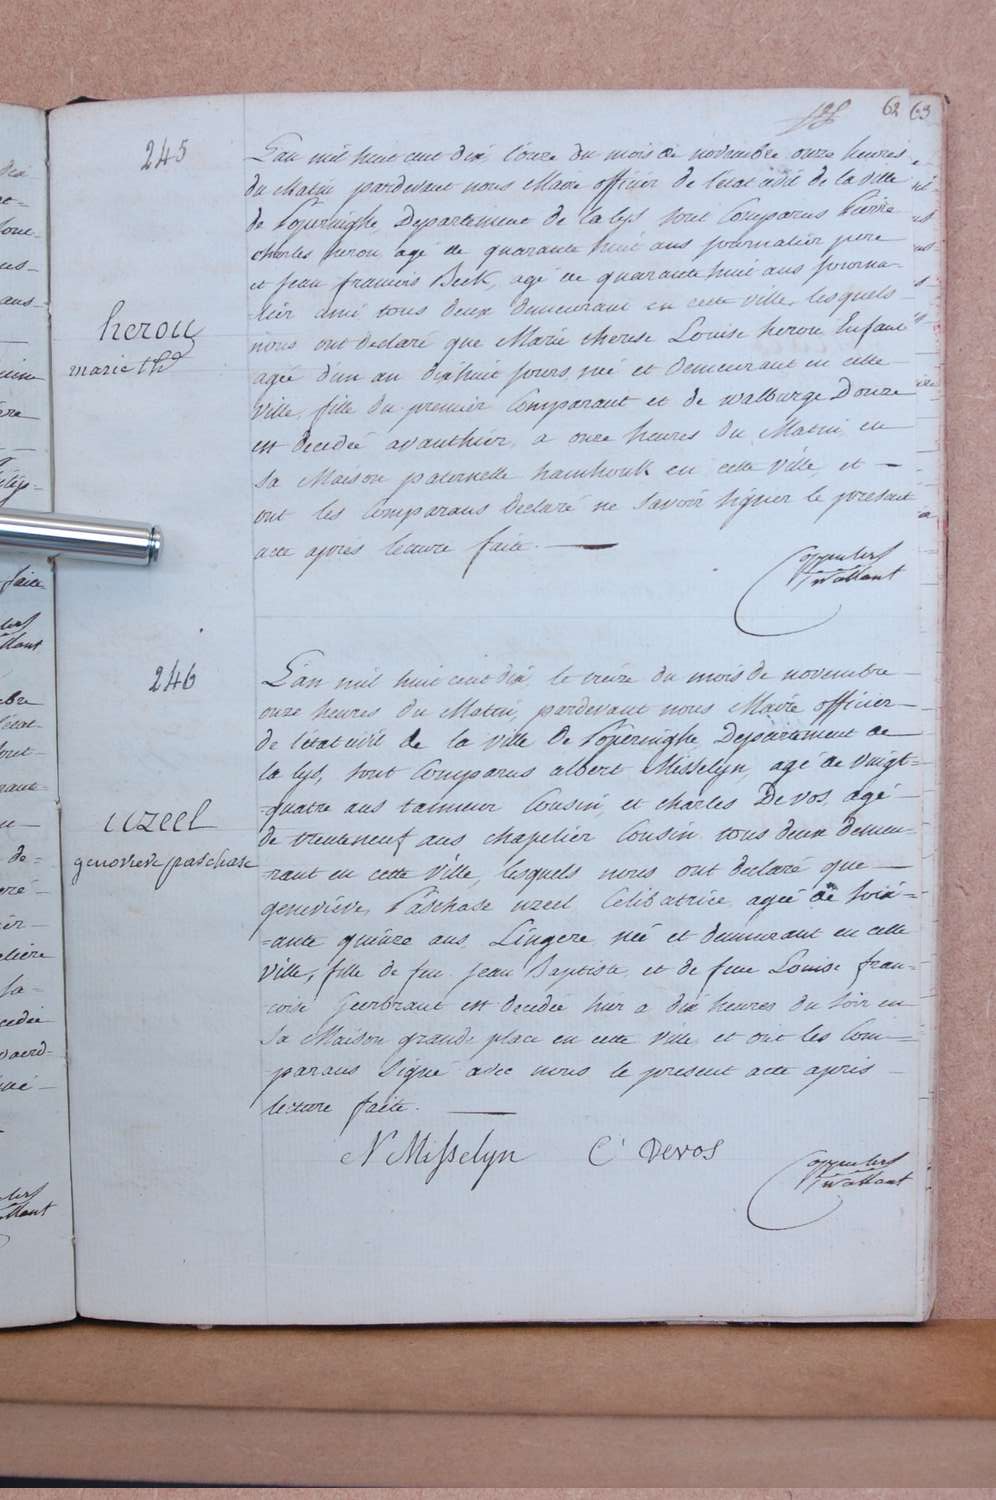 62 63
245
L'an mil huit cent dix l'onze du mois de novembre onze heures
du Matin pardevant nous Maire officier de l'etat civil de la ville
de Poperinghe, Departement de la lys sont Comparus Pierre
charles herou, agé de quarante huit ans journalier pere
et jean francois Beck, agé de quarante huit ans journa-
lier ami tous deux demeurant en cette ville, lesquels
herou
nous ont declaré que Marie therese Louise herou Enfant
marie thé
agée d'un an dixhuit jours, née et demeurant en cette
ville, fille du premier Comparant et de walburge Donze
est decedée avanthier, a onze heures du Matin, en
sa Maison paternelle hamhouk en cette ville, et —
ont les Comparans declaré ne savoir signer le present
acte après lecture faite. —
246
L'an mil huit cent dix, le treize du mois de novembre
onze heures du Matin, pardevant nous Maire officier
de l'etat civil de la ville de Poperinghe, Departement de
la lys, sont Comparus albert Misselyn, agé de vingt=
=quatre ans tanneur Cousin, et charles De vos, agé
uzeel
de trenteneuf ans chapelier Cousin tous deux demeu-
genevieve paschase
rant en cette ville, lesquels nous ont declaré que —
genevieve, Paschase uzeel Celibatrice, agée de soix=
=ante quinze ans, Lingere née et demeurant en cette
ville, fille de feu jean Baptiste, et de feue Louise fran-
coise est decedée hier a dix heures du soir en
sa Maison grande place en cette ville, et ont les Com=
parans signé avec nous le present acte après
lecture faite. —
N Misselyn C Devos